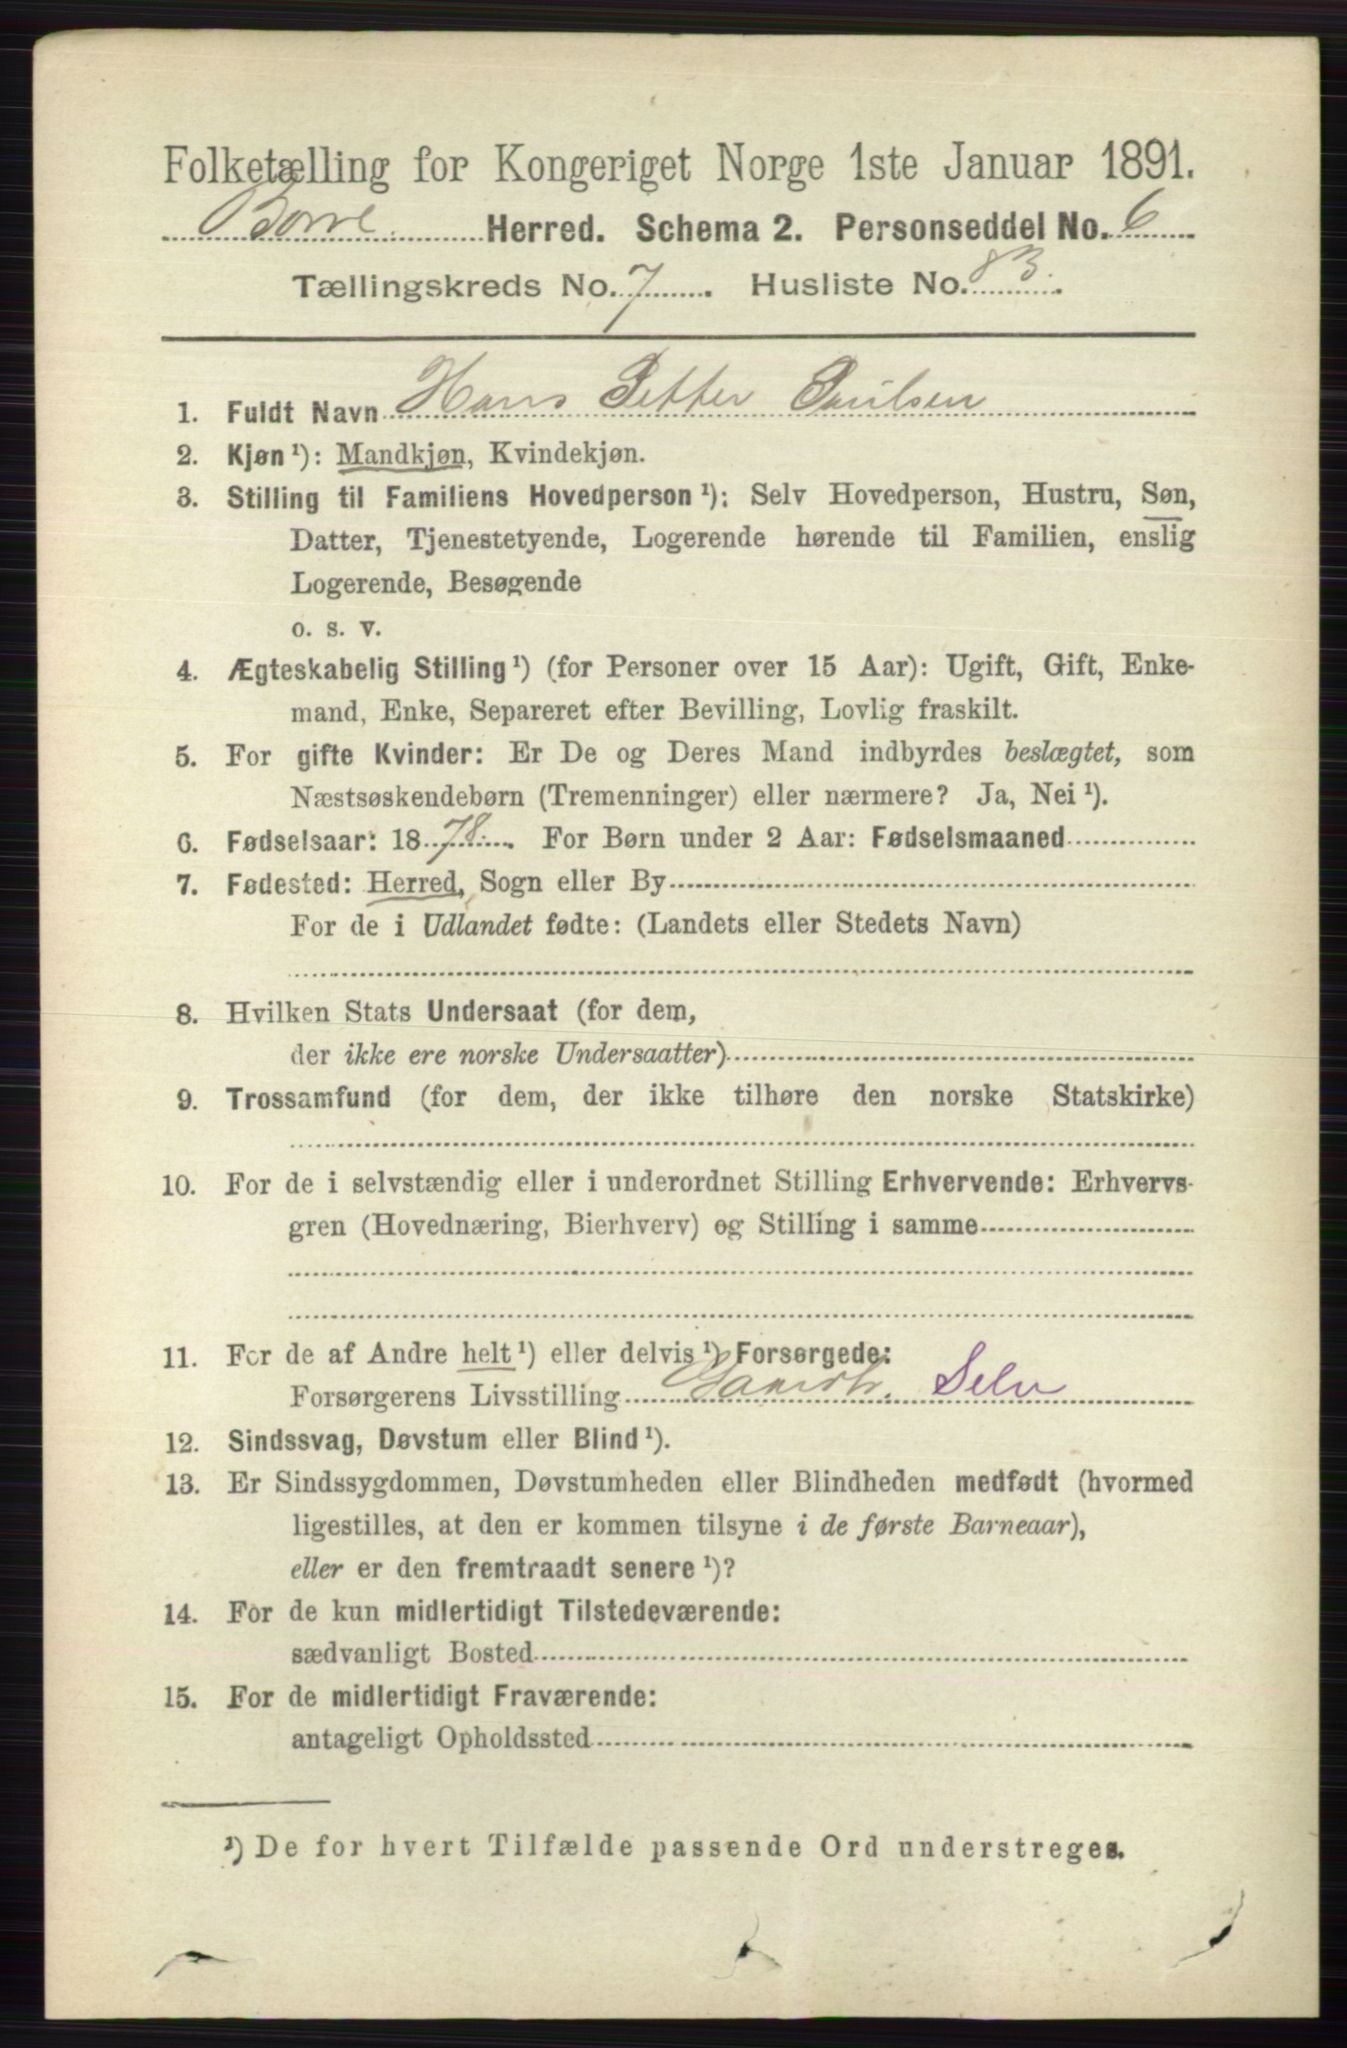 Folketælling for Kongeriget Norge 1ste Januar 1891.
Borre Herred. Schema 2. Personseddel No. 6
Tællingskreds No. 7. Husliste No. 83.
1. Fuldt Navn Hans Petter Paulsen
2. Kjøn¹): Mandkjøn, Kvindekjøn.
3. Stilling til Familiens Hovedperson¹): Selv Hovedperson, Hustru, Søn,
Datter, Tjenestetyende, Logerende hørende til Familien, enslig
Logerende, Besøgende
o. s. v.
4. Ægteskabelig Stilling¹) (for Personer over 15 Aar): Ugift, Gift, Enke-
mand, Enke, Separeret efter Bevilling, Lovlig fraskilt.
5. For gifte Kvinder: Er De og Deres Mand indbyrdes beslægtet, som
Næstsøskendebørn (Tremenninger) eller nærmere? Ja, Nei¹).
6. Fødselsaar: 1878. For Børn under 2 Aar: Fødselsmaaned
7. Fødested: Herred, Sogn eller By
For de i Udlandet fødte: (Landets eller Stedets Navn)
8. Hvilken Stats Undersaat (for dem,
der ikke ere norske Undersaatter)
9. Trossamfund (for dem, der ikke tilhøre den norske Statskirke)
10. For de i selvstændig eller i underordnet Stilling Erhvervende: Erhvervs-
gren (Hovednæring, Bierhverv) og Stilling i samme
11. For de af Andre helt¹) eller delvis¹) Forsørgede:
Forsørgerens Livsstilling Gaardbr. Selv
12. Sindssvag, Døvstum eller Blind¹).
13. Er Sindssygdommen, Døvstumheden eller Blindheden medfødt (hvormed
ligestilles, at den er kommen tilsyne i de første Barneaar),
eller er den fremtraadt senere¹)?
14. For de kun midlertidigt Tilstedeværende:
sædvanligt Bosted
15. For de midlertidigt Fraværende:
antageligt Opholdssted
¹) De for hvert Tilfælde passende Ord understreges.